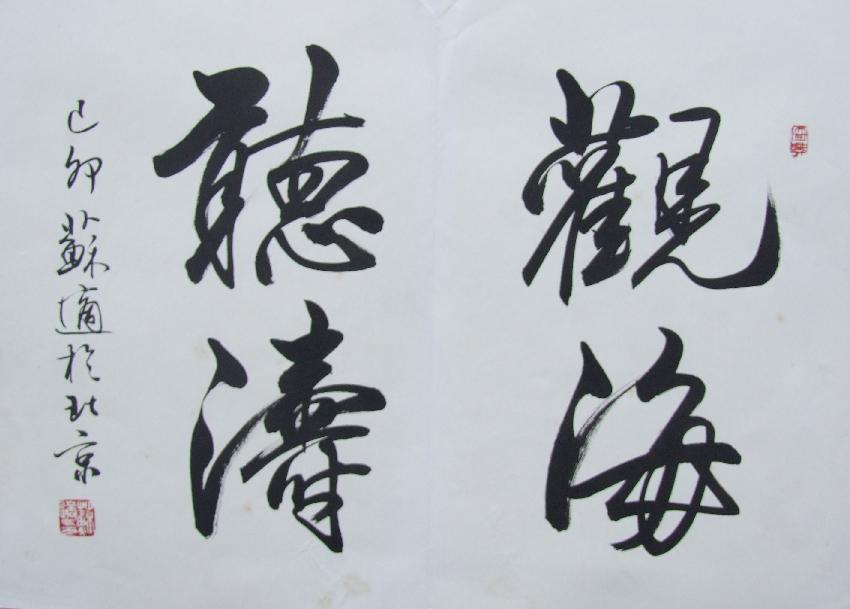 觀海
聽濤
己卯蘇適於北京